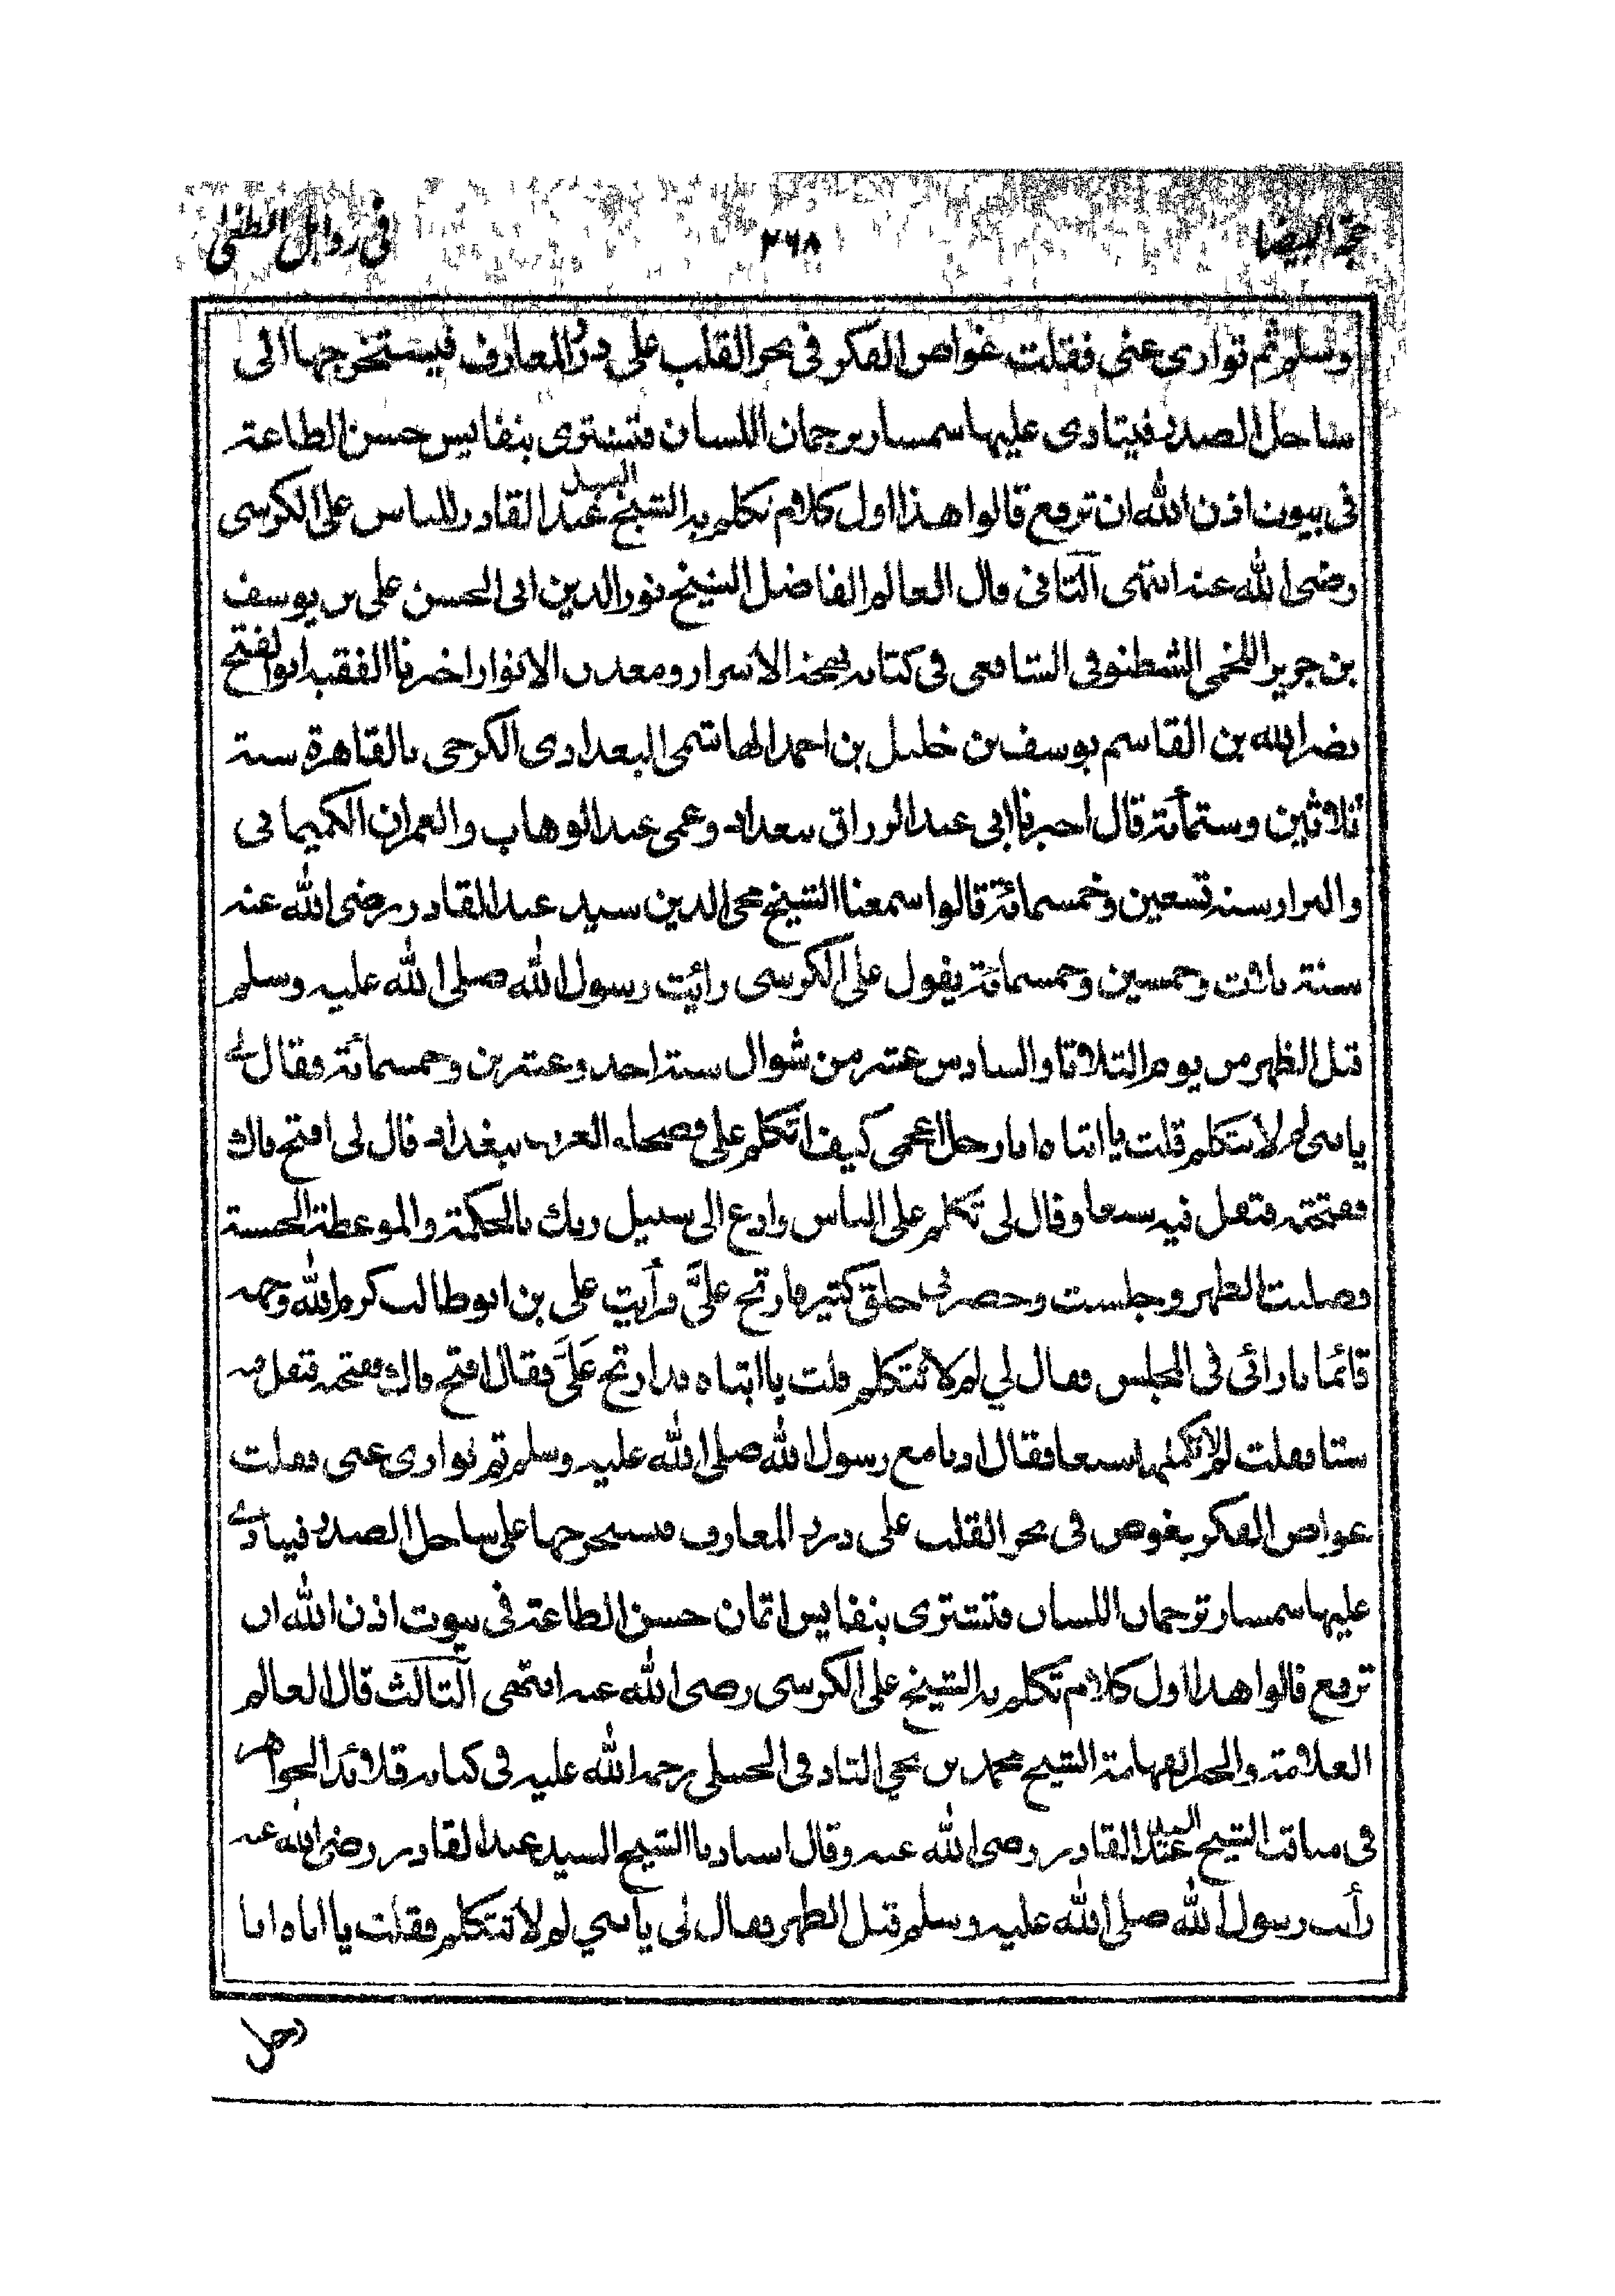 حجة البيضا ٢٦٨ في
وسلم ثم توارى عنى فقلت غواص الفكر فى بحر القلب على درر المعارف فيستخرجها الى
ساحل الصدر فيتادى عليها سمسار ترجمان اللسان فتشترى بنفايس حسن الطاعة
فى بيوت اذن الله ان ترفع قالوا هذا اول كلام تكلم به الشيخ السيد عبد القادر للناس على الكرسى
رضى الله عنه انتهى الثانى قال العالم الفاضل الشيخ نور الدين ابى الحسن على بن يوسف
بن جرير اللخمى الشطنوفى الشافعى فى كتابه بهجة الاسرار ومعدن الانوار اخبرنا الفقيه ابو الفتح
نصر الله بن القاسم يوسف بن خليل بن احمد الهاشمى البغدادى الكرخى بالقاهرة سنة
ثلاثين وستمأئة قال اخبرنا ابى عبد الرزاق ببغداد وعمى عبد الوهاب والعمران الكميماتى
والبزار سنة تسعين وخمسمائة قالوا سمعنا الشيخ محى الدين سيد عبد القادر رضى الله عنه
سنة وخمسين وخمسمائة يقول على الكرسى رائيت رسول الله صلى الله عليه وسلم
قبل الظهر من يوم الثلاثا والسادس عشر من شوال سنة احد وعشرين وخمسمائة وقال لى
يا بنى لم لا تتكلم قلت يا ابتاه انا رجل اعجمى كيف اتكلم على فصحاء العرب ببغداد قال لى افتح فاك
ففتحته فتفل فيه سبعا وقال لى تكلم على الناس وادع الى سبيل ربك بالحكمة والموعظة الحسنة
فصليت الظهر وجلست وحضرنى خلق كثير فارتج علىَّ فرأيت على بن ابو طالب كرم الله وجهه
قائما بارائى فى المجلس فقال لي لم لا تتكلم قلت يا ابتاه قد ارتج عَلَىَّ فقال افتح فاك ففتحته فتفل فيه
ستا فقلت لم لا تكملها سبعا فقال ادبا مع رسول الله صلى الله عليه وسلم ثم توارى عنى فقلت
غواص الفكر يغوص فى بحر القلب على درر المعارف فيستخرجها على ساحل الصدر فينادى
عليها سمسار ترجمان اللسان فتشترى بنفايس اثمان حسن الطاعة فى بيوت اذن الله ان
ترفع قالوا هذا اول كلام تكلم به الشيخ على الكرسى رضى الله عنه انتهى الثالث قال العالم
العلامة والحبر الفهامة الشيخ محمد بن يحي التادفى الحنبلى رحمه الله عليه فى كتابه قلائد الجواهر
فى مناقب الشيخ السيد عبد القادر رضى الله عنه وقال استادنا الشيخ السيد عبد القادر رضى الله عنه
رأيت رسول الله صلى الله عليه وسلم قبل الظهر فقال لى يا بني لم لا تتكلم فقلت يا اباه انا
رجل